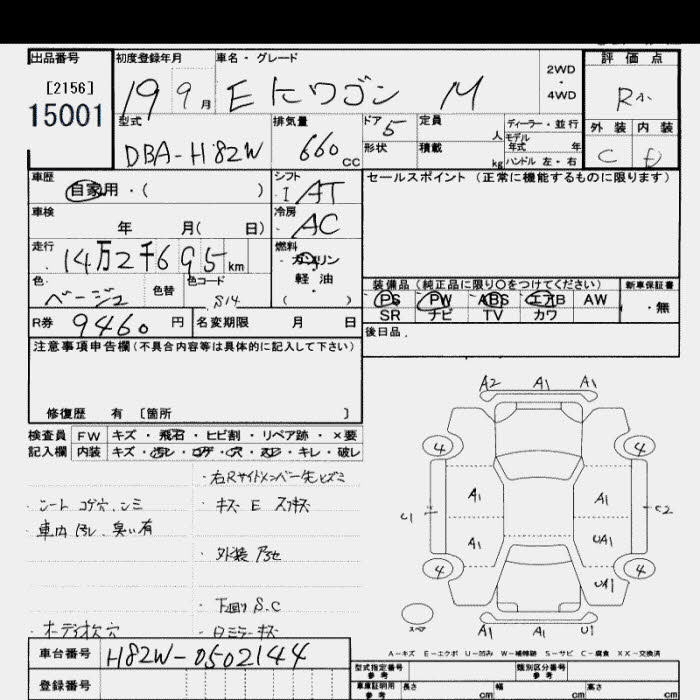 出品番号
[2156]
15001
初度登録年月
19 9月
車名・グレード
EKワゴン M
2WD
・
4WD
評価点
R小
外装 内装
C D
型式
DBA-H82W
排気量
660 CC
ドア 5
形状
定員 人
積載 kg
ディーラー・並行
モデル年式 年
ハンドル 左・右
車歴
自家用・( )
シフト
I AT
冷房
AC
車検
年 月( 日)
走行
14万2千695km
燃料
ガソリン
軽油
( )
色
ベージュ
色替
色コード
S14
R券 9460円
名変期限 月 日
セールスポイント (正常に機能するものに限ります)
装備品 (純正品に限り○をつけてください)
PS PW ABS エアB AW
SR ナビ TV カワ
新車保証書
・無
後日品
注意事項申告欄(不具合内容等は具体的に記入して下さい)
修復歴 有 〔箇所 〕
検査員 FW キズ・飛石・ヒビ割・リペア跡・×要
記入欄 内装 キズ・汚レ・コゲ・穴・スレ・キレ・破レ
・右Rサイドメンバー先ヒズミ
・シート コゲ穴、シミ
・キズ E スリキズ
・車内 汚レ、臭い有
・外装 アセ
・下回り S.C
・オーディオ欠 穴
・日ミラーキズ
車台番号 H82W-0502144
登録番号
A2 A1 A1
4 4
A1 A1
U1 C2
A1 UA1
4 4
UA1
スペア
A1 A1 U1
A-キズ E-エクボ U-凹み W-補修跡 S-サビ C-腐食 XX-交換済
型式指定番号
参考
類別区分番号
参考
車庫証明用
参考
長さ cm
幅 cm
高さ cm